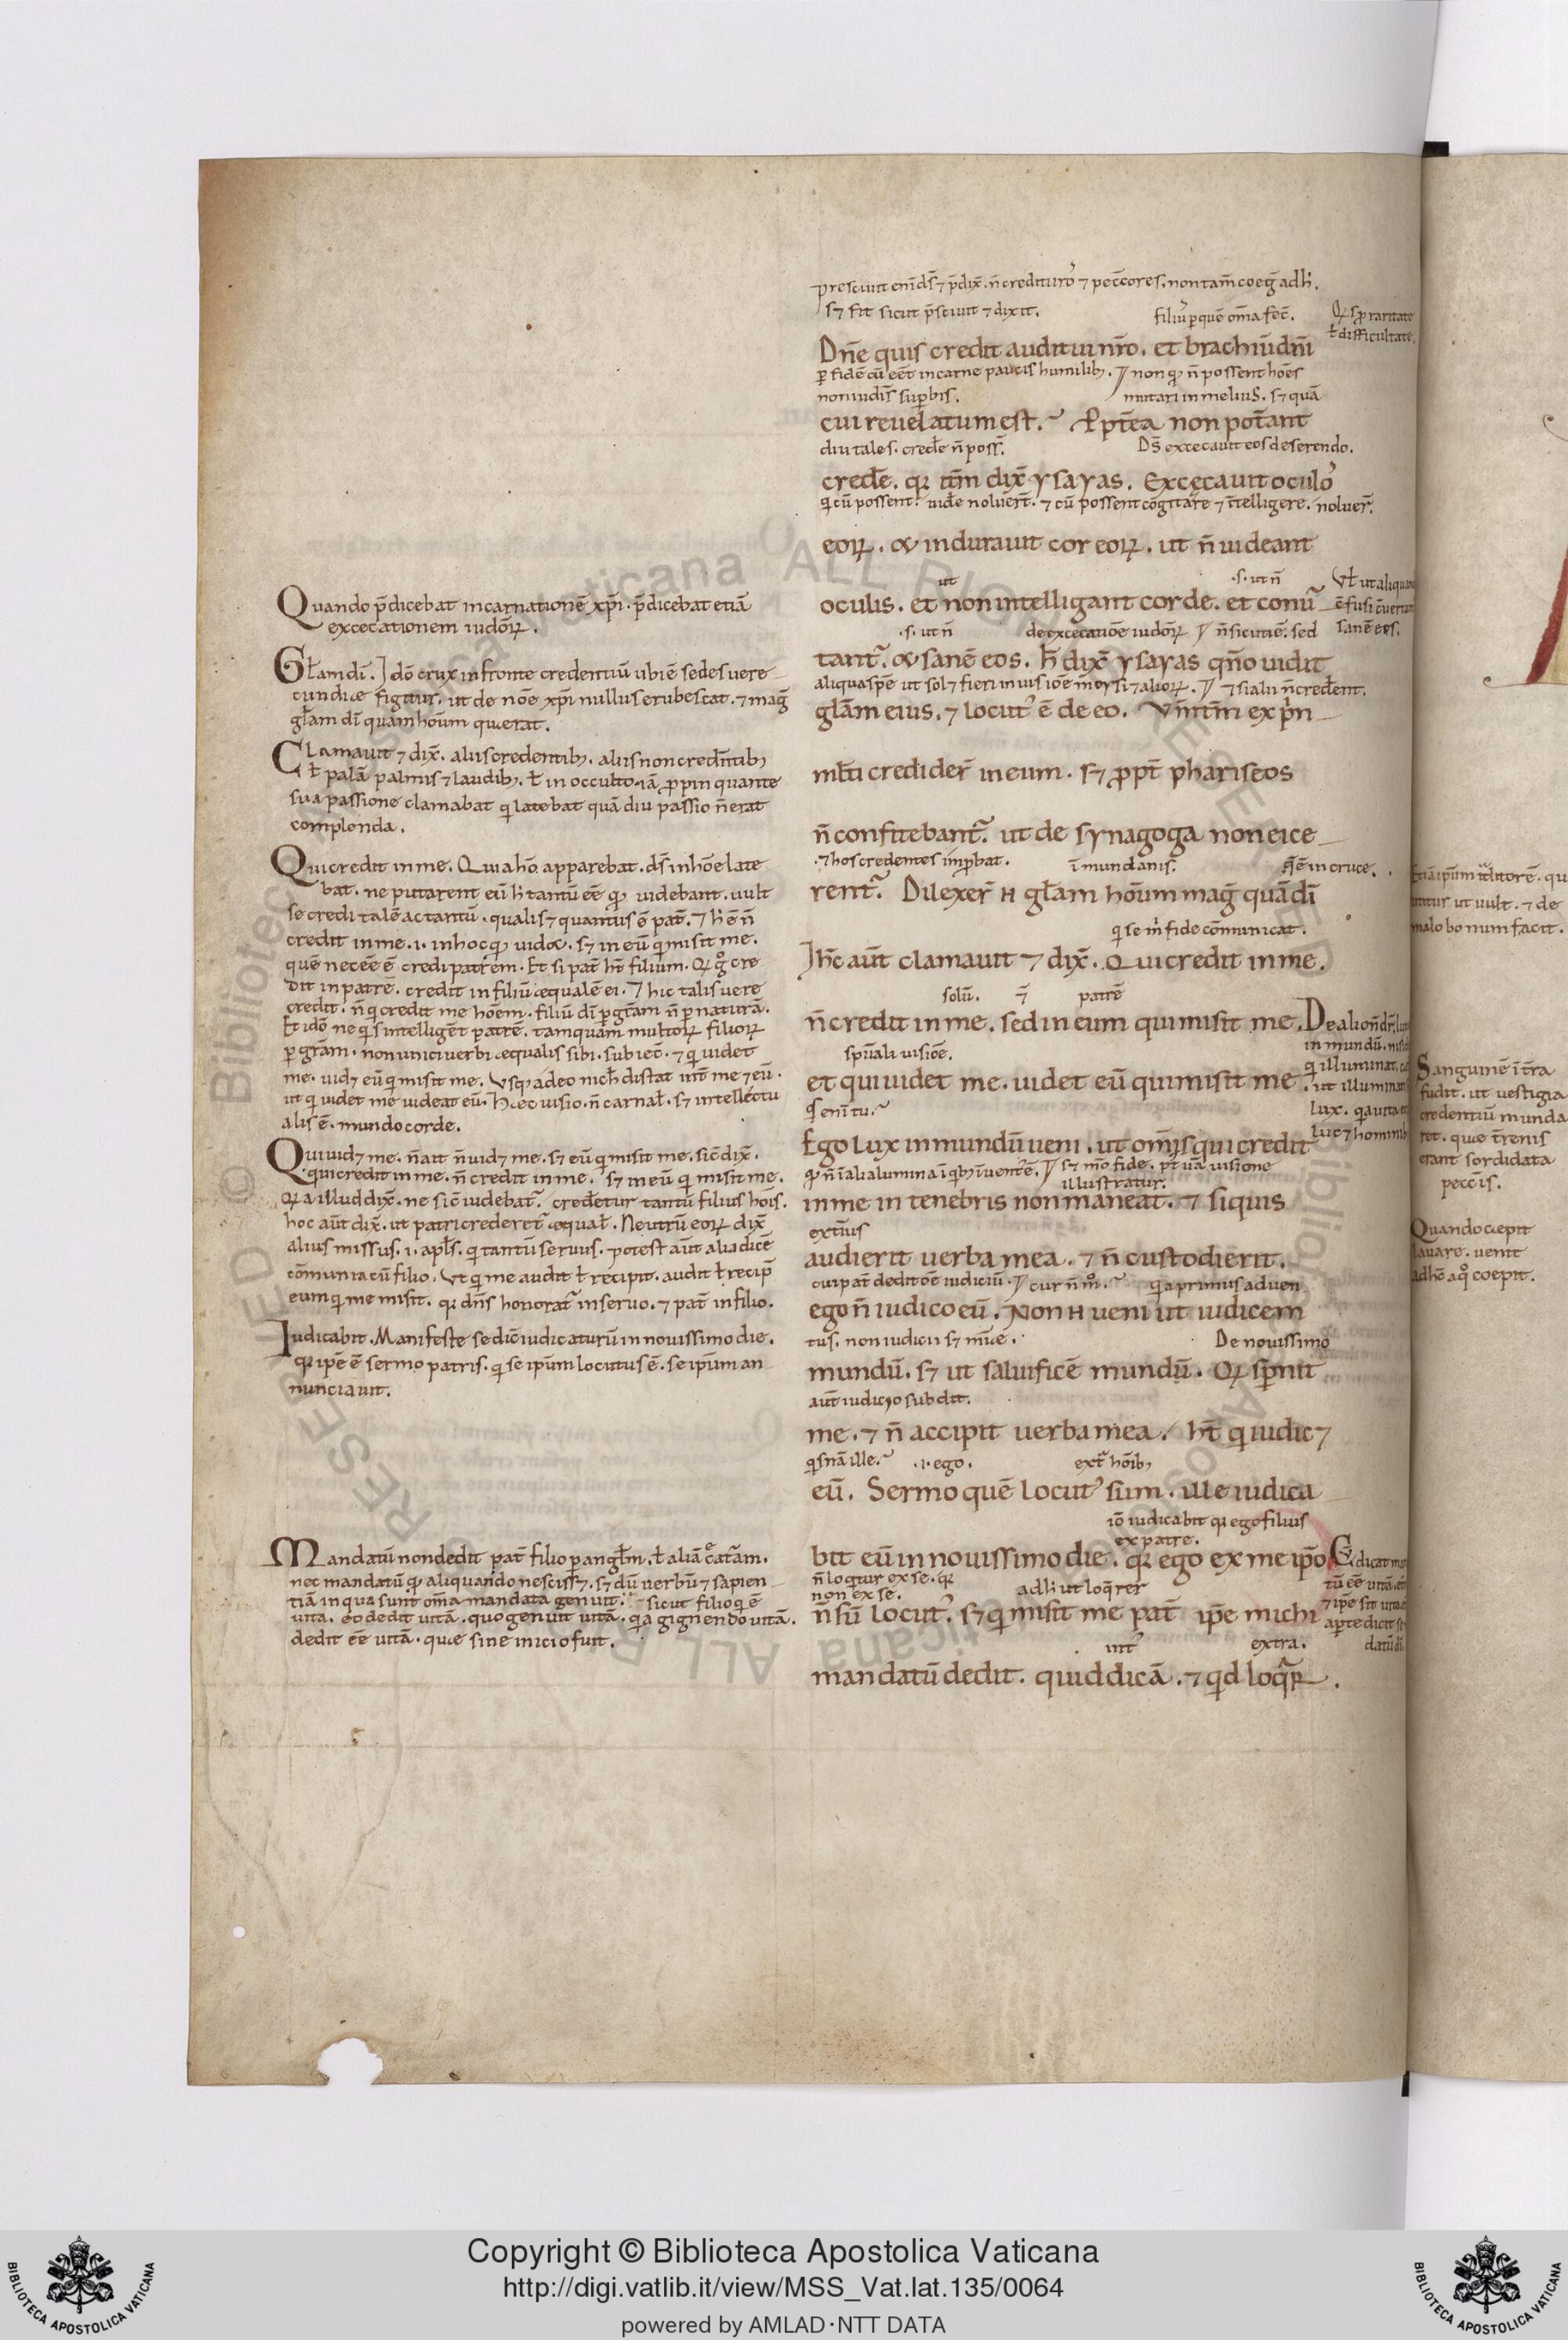 presciuit eni ds ⁊ p̄dix̄. n̄ credituro᷒ ⁊ peccores. non tam̄ coeḡ adh̄.
s⁊ fit sicut p̄sciuit ⁊ dixit. filiu᷒ per quē om̄a fec̄.
Qr̄ spraritate
ł difficultate.
Dn̄e quis credit auditui nr̄o. et brachiū dn̄i
ꝑ fidē cū eēt in carne paucis humilibꝫ. ⁊ non qꝫ n̄ possent hoēs
non iudis suꝑbis. mutari in melius. s⁊ quā
cui reuelatum est. Ppt̄ea non pot̄ant
diu tales. credēe n̄ poss̄. Ds̄ excecauit eos deserendo.
credēe. qꝛ itm̄ dix̄ ysayas. Excecauit oculo᷒
qi cū possent uidēe noluer̄t. ⁊ cū possent cogitare ⁊ ītelligere. noluer̄.
eoꝝ. & indurauit cor eoꝝ. ut n̄ uideant
ut .s. ut n̄
Vł ut aliquan
oculis. et non intelligant corde. et conu᷒
sanē eos.
.s. ut n̄ de excecatiōe iudōꝝ n̄ sicuti ē. sed
tant᷒. & sanē eos. h̄ dix̄ ysayas qn̄o uidit
aliqua spē ut sol⁊ fieri in uisiōe moysi ⁊ alioꝝ. ⁊ si alii n̄ credēent.
gl̄am eius. ⁊ locut᷒ ē de eo. Vm̄tm̄ ex p̄n
ml̄ti credider̄ in eum. s⁊ ꝓpt̄ phariseos
n̄ confitebant᷒. ut de synagoga non eice
⁊ hos credentes imꝓbat. ī mundanis. q̄ ē in cruce.
rent᷒. Dilexer̄ H gl̄am hoūm maḡ quā di
qi se m̄ fide cōmunicat.
Ihc̄ aut̄ clamauit ⁊ dix̄. Qui credit in me.
solū. ⁊ patrē
n̄ credit in me. sed in eum qui misit me.
sp̄uali uisiōe.
et qui uidet me. uidet eū qui misit me.
qis eni tu.
Ego lux in mundū ueni. ut om̄is qui credit
illustratur.
in me in tenebris non maneat. ⁊ siquis
exti᷒us
audierit uerba mea. ⁊ n̄ custodierit.
cui pat̄ dedit oē iudiciū. ⁊ cur n̄ m̊. qia primus aduen
ego n̄ iudico eū. Non H ueni ut iudicem
tus. non iudicii s⁊ mīe. De nouissimo
mundū. s⁊ ut saluificē mundū. Qꝛ sꝑnit
aut̄ iudicio subdit.
me. ⁊ n̄ accipit uerba mea. ht̄ qi iudic⁊
qisnā ille. .i. ego. ext᷒ hoībꝫ
eū. Sermo quē locut᷒ sum. ille iudica
iō iudicabit qꝛ ego filius
ex patre.
bit eū in nouissimo die. qꝛ ego ex me ip̄o
n̄ loqitur ex se. qꝛ
non ex se. adh̄ ut loq̄rer
n̄ sū locut᷒. s⁊ qi misit me pat̄ ip̄e michi
int᷒ extra.
mandatū dedit. quid dicā. ⁊ qid loq̄r.
Quando p̄dicebat incarnationē xp̄i. p̄dicebat etiā
excecationem iudōꝝ.
Gl̄am di. Idō crux in fronte credentiū ubi ē sedes uere
cundiæ figitur. ut de noē xp̄i nullus erubescat. ⁊ maḡ
gl̄am di quam hoūm quærat.
Clamauit ⁊ dix̄. aliis credentibꝫ. aliis non credn̄tibꝫ
ł palā palmis ⁊ laudibꝫ. ł in occulto iā ꝓpinquante
sua passione clamabat qi latebat quādiu passio n̄ erat
complenda.
Qui credit in me. Quia ho apparebat. ds̄ in hoē late
bat. ne putarent eū h̄ tantū eē qꝫ uidebant. uult
se credi talē ac tantū. qualis ⁊ quantus ē pat̄. ⁊ h̄ ē n̄
credit in me. i. in hoc qꝫ uid&. s⁊ in eū qi misit me.
quē necēe ē credi patrem. Et si pat̄ ht̄ filium. Qꝛ g̊ cre
dit in patrē. credit in filiū æqualē ei. ⁊ hic talis uere
credit. n̄ qi credit me hoēm. filiū di ꝑ gr̄am n̄ ꝑ naturā.
Et idō ne qis intelligēt patrē. tamquam multoꝝ filioꝝ
ꝑ gr̄am. non unici uerbi æqualis sibi. subiec̄. ⁊ qi uidet
me. uid⁊ eū qi misit me. Usqꝫ adeo nich̄ distat int̄ me ⁊ eū.
ut qi uidet me uideat eū. Hæc uisio. n̄ carnal̄. s⁊ intellectu
alis ē. mundo corde.
Qui uid⁊ me. n̄ ait n̄ uid⁊ me. s⁊ eū qi misit me. sic̄ dix̄.
qui credit in me. n̄ credit in me. s⁊ in eū qi misit me.
Qꝛ a illud dix̄. ne sic̄ uidebat᷒. credēetur tantū filius hois.
hoc aut̄ dix̄. ut patri crederet᷒ æqual̄. Neutrū eoꝝ dix̄
alius missus. i. apl̄s. qi tantū seruus. potest aut̄ alia dicē
cōmunia cū filio. Ut qi me audit ł recipit. audit ł recip̄
eum qi me misit. qꝛ dn̄s honorat᷒ in seruo. ⁊ pat̄ in filio.
Iudicabit. Manifeste se dic̄ iudicaturū in nouissimo die.
qꝛ ip̄e ē sermo patris. qi se ip̄um locutus ē. se ip̄um an
nunciauit.
Mandatū non dedit pat̄ filio ꝑ angl̄m. ł aliā c᷒aturam.
nec mandatū qꝫ aliquando nesciss⁊. s⁊ dū uerbū ⁊ sapien
tiā in qua sunt om̄a mandata genuit. sicut filio qi ē
uita. eo dedit uitā. quo genuit uitā. qia gignendo uitā.
dedit eē uitā. quæ sine inicio fuit.
in mundū.
qi illuminat.
ut illuminat
lux.
luc̄ ⁊ hominib
malo bonum facit.
Sanguinē ītra
fudit. ut uestigia
credentiū munda
ret. quæ t̄renis
erant sordidata
pecc̄is.
Quando cæpit
lauare. uenit
adhc̄ aq̊ coepit.
Copyright © Biblioteca Apostolica Vaticana
http://digi.vatlib.it/view/MSS_Vat.lat.135/0064
powered by AMLAD·NTT DATA
BIBLIOTECA APOSTOLICA VATICANA
BIBLIOTECA APOSTOLICA VATICANA